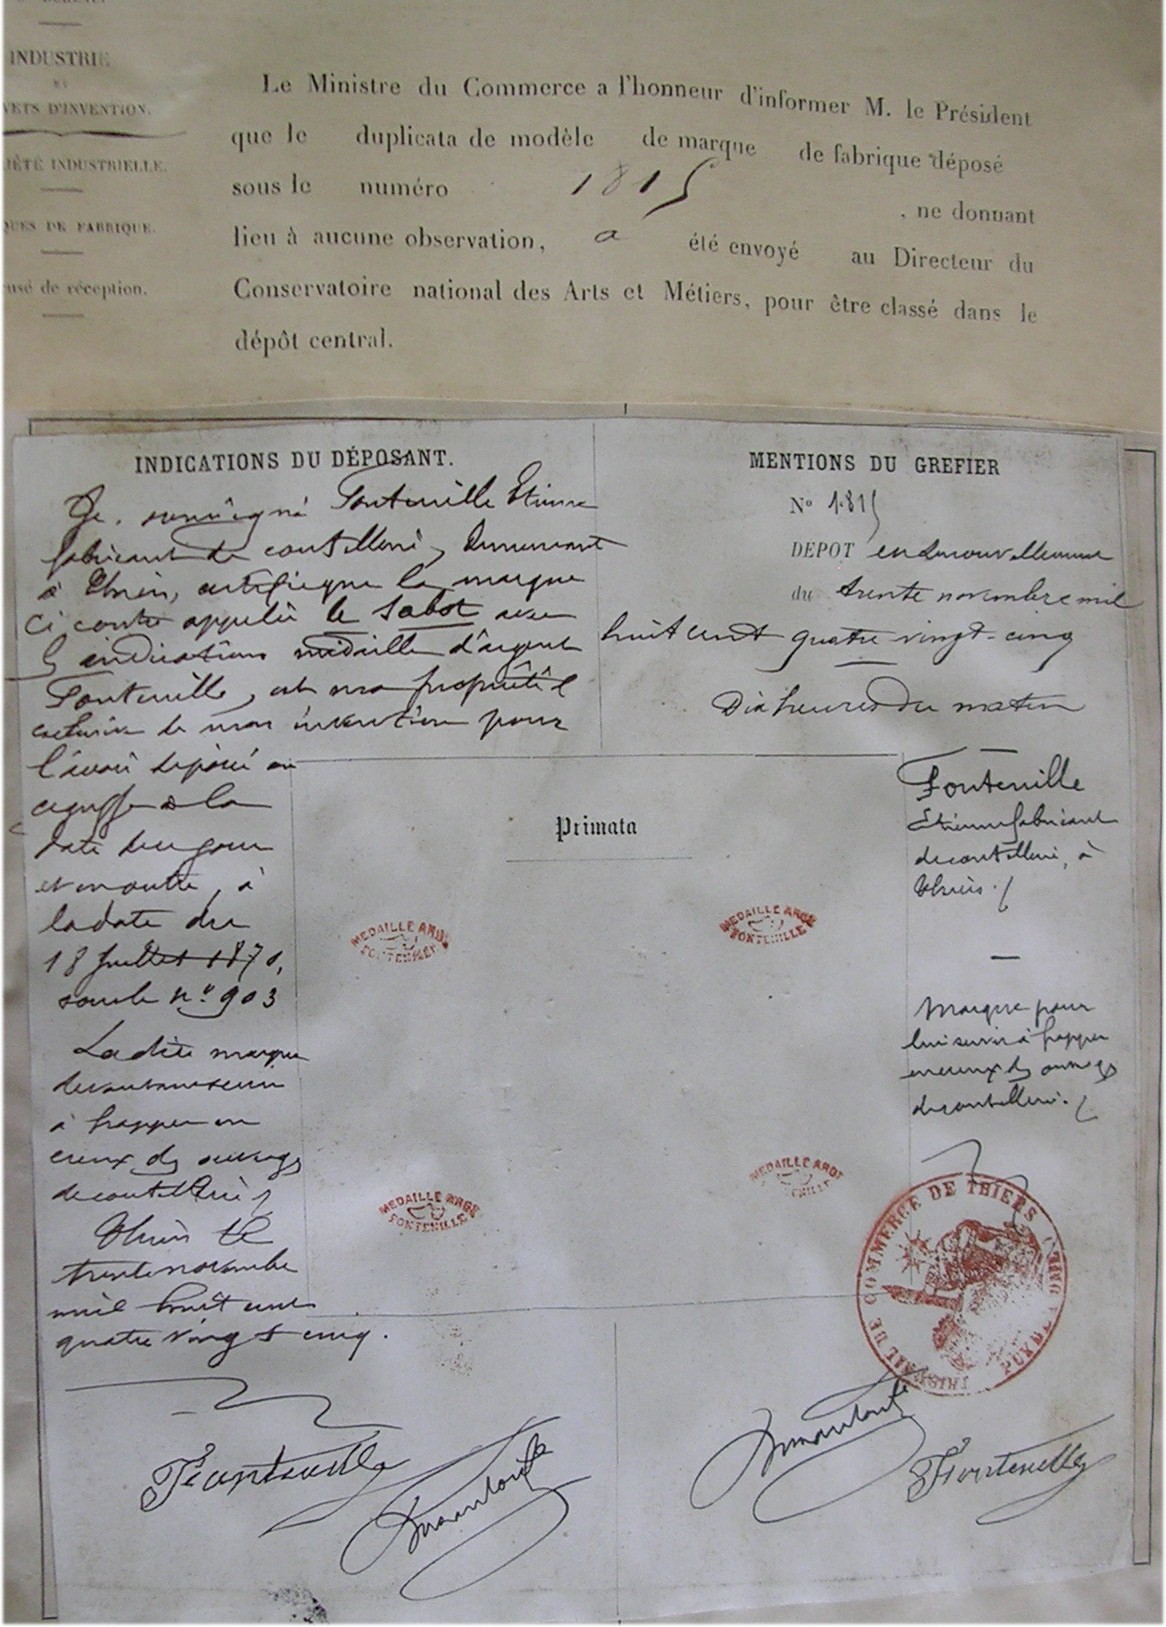 INDUSTRIE
ET
VETS D'INVENTION.
IÉTÉ INDUSTRIELLE.
QUES DE FABRIQUE.
usé de réception.
Le Ministre du Commerce a l'honneur d'informer M. le Président
que le duplicata de modèle de marque de fabrique déposé
sous le numéro 1815, ne donnant
lieu à aucune observation, a été envoyé au Directeur du
Conservatoire national des Arts et Métiers, pour être classé dans le
dépôt central.
INDICATIONS DU DÉPOSANT.
Je soussigné Fontenille Etienne
fabricant de coutellerie, demeurant
à Thiers, certifie que la marque
ci contre appelée le Sabot avec
l'indication médaille d'argent
Fontenille, est ma propriété
exclusive de mon invention pour
l'avoir déposé au
greffe à la
date de ce jour
et en outre, à
la date du
18 Juillet 1870,
sous le n° 903
La dite marque
devant me servir
à frapper en
creux des ouvrages
de coutellerie
Thiers le
trente novembre
mil huit cent
quatre vingt cinq.
Fontenille
MENTIONS DU GREFIER
N° 1815
DEPOT en renouvellement
du trente novembre mil
huit cent quatre vingt-cinq
Dix heures du matin
Fontenille
Etienne fabricant
de coutellerie, à
Thiers.
Marque pour
lui servir à frapper
en creux des ouvrages
de coutellerie.
Primata
MEDAILLE ARGT
FONTENILLE
MEDAILLE ARGT
FONTENILLE
MEDAILLE ARGT
FONTENILLE
MEDAILLE ARGT
FONTENILLE
TRIBUNAL DE COMMERCE DE THIERS
PUY DE DÔME
Fontenille